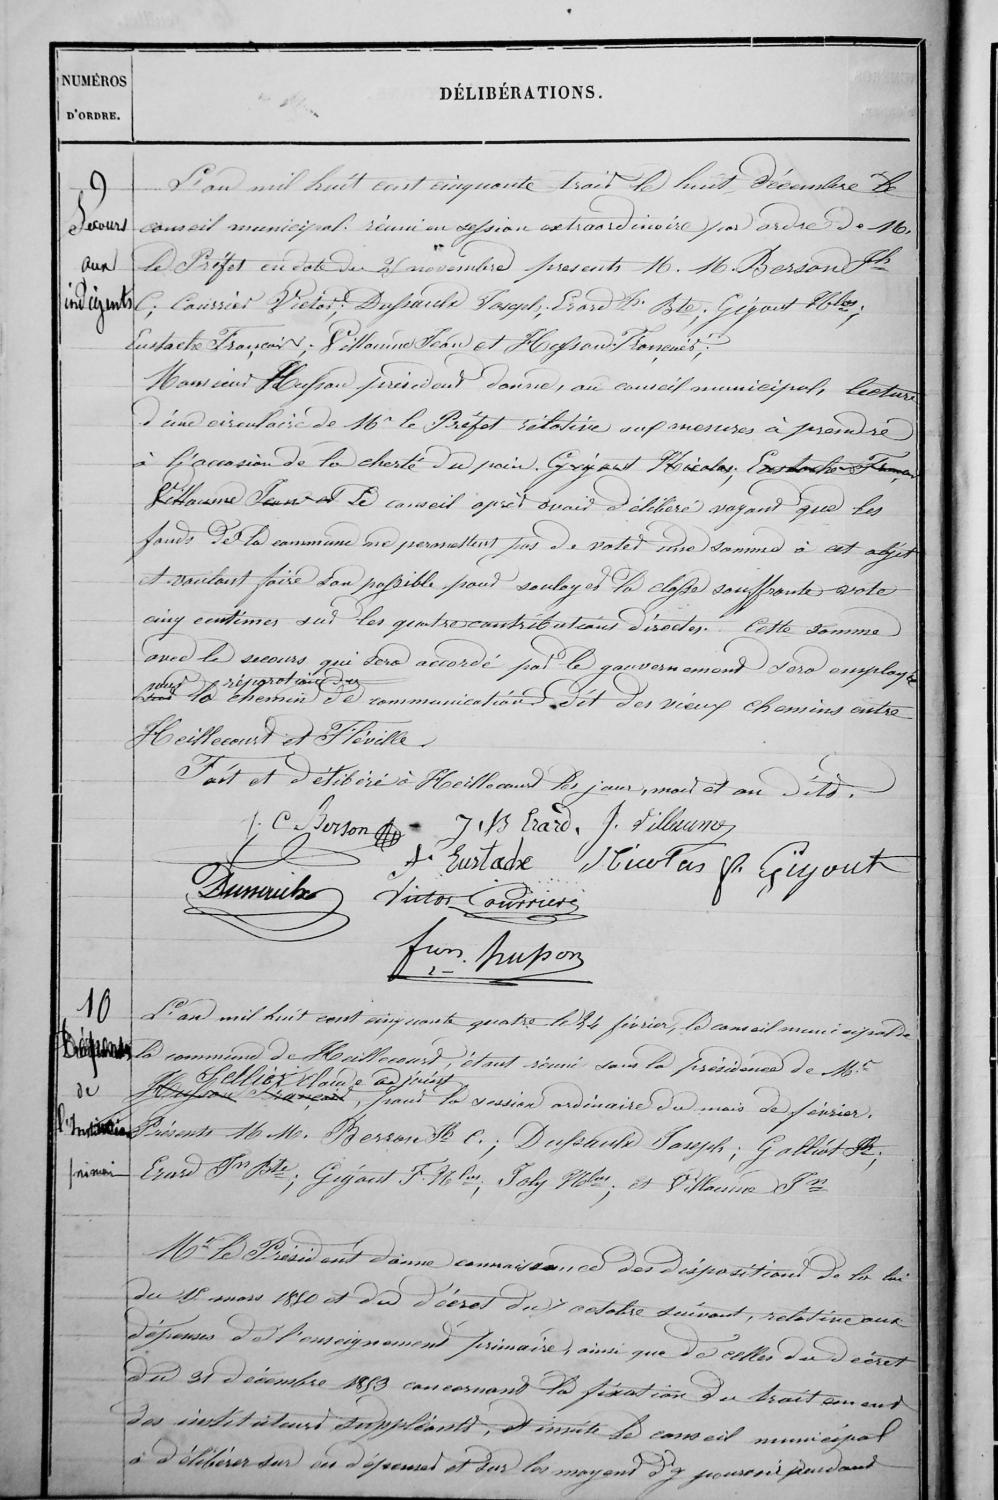 NUMÉROS
D'ORDRE.
DÉLIBÉRATIONS.
9
Secours
aux
indigents
L'an mil huit cent cinquante trois le huit décembre le
conseil municipal réuni en session extraordinaire par ordre de M.
le Préfet en date du 21 novembre presents M. M. Berson Jh
C; Courrier Victor; Dussaulx Joseph; Erard Jn Bte; Gigout Nlas;
Eustache François; Villaume Jean et Husson François;
Monsieur Husson président donne, au conseil municipal, lecture
d'une circulaire de Mr le Préfet rélative aux mesures à prendre
à l'occasion de la cherté du pain. Gigout Nicolas; Eustache François
Villaume Jean et Le conseil après avoir délibéré voyant que les
fonds de la commune ne permettent pas de voter une somme à cet objet
et voulant faire son possible pour soulager la classe souffrante vote
cinq centimes sur les quatre contributions directes. Cette somme
avec le secours qui sera accordé par le gouvernement sera employée
pour réparation du
la chemin de communication dit des vieux chemins entre
Heillecourt et Fléville.
Fait et délibéré à Heillecourt les jour, mois et an dits.
J. C. Berson
J. B Erard. J. Villaume
f. Eustache Nicolas f. Gigout
Dussaulx
Victor Courrier
fran. husson
10
Dépenses
de
l'Instruction
primair
L'an mil huit cent cinquante quatre le 24 février, le conseil municipal de
la commune de Heillecourt, étant réuni sous la présidence de Mr
Gelliot Claude adjoint
Husson François, pour la session ordinaire du mois de février.
Présents M. M. Berson Jh C.; Dussaulx Joseph; Galliot;
Erard Jn Bte; Gigout F. Nlas; Joly Nlas; et Villaume Jn
Mr le Président donne connaissance des dispositions de la loi
du 15 mars 1850 et du décret du 7 octobre suivant, relative aux
dépenses de l'enseignement primaire, ainsi que de celles du décret
du 31 décembre 1853 concernant la fixation du traitement
des instituteurs suppléants, et invite le conseil municipal
à délibérer sur ces dépenses et sur les moyens d'y pourvoir pendant